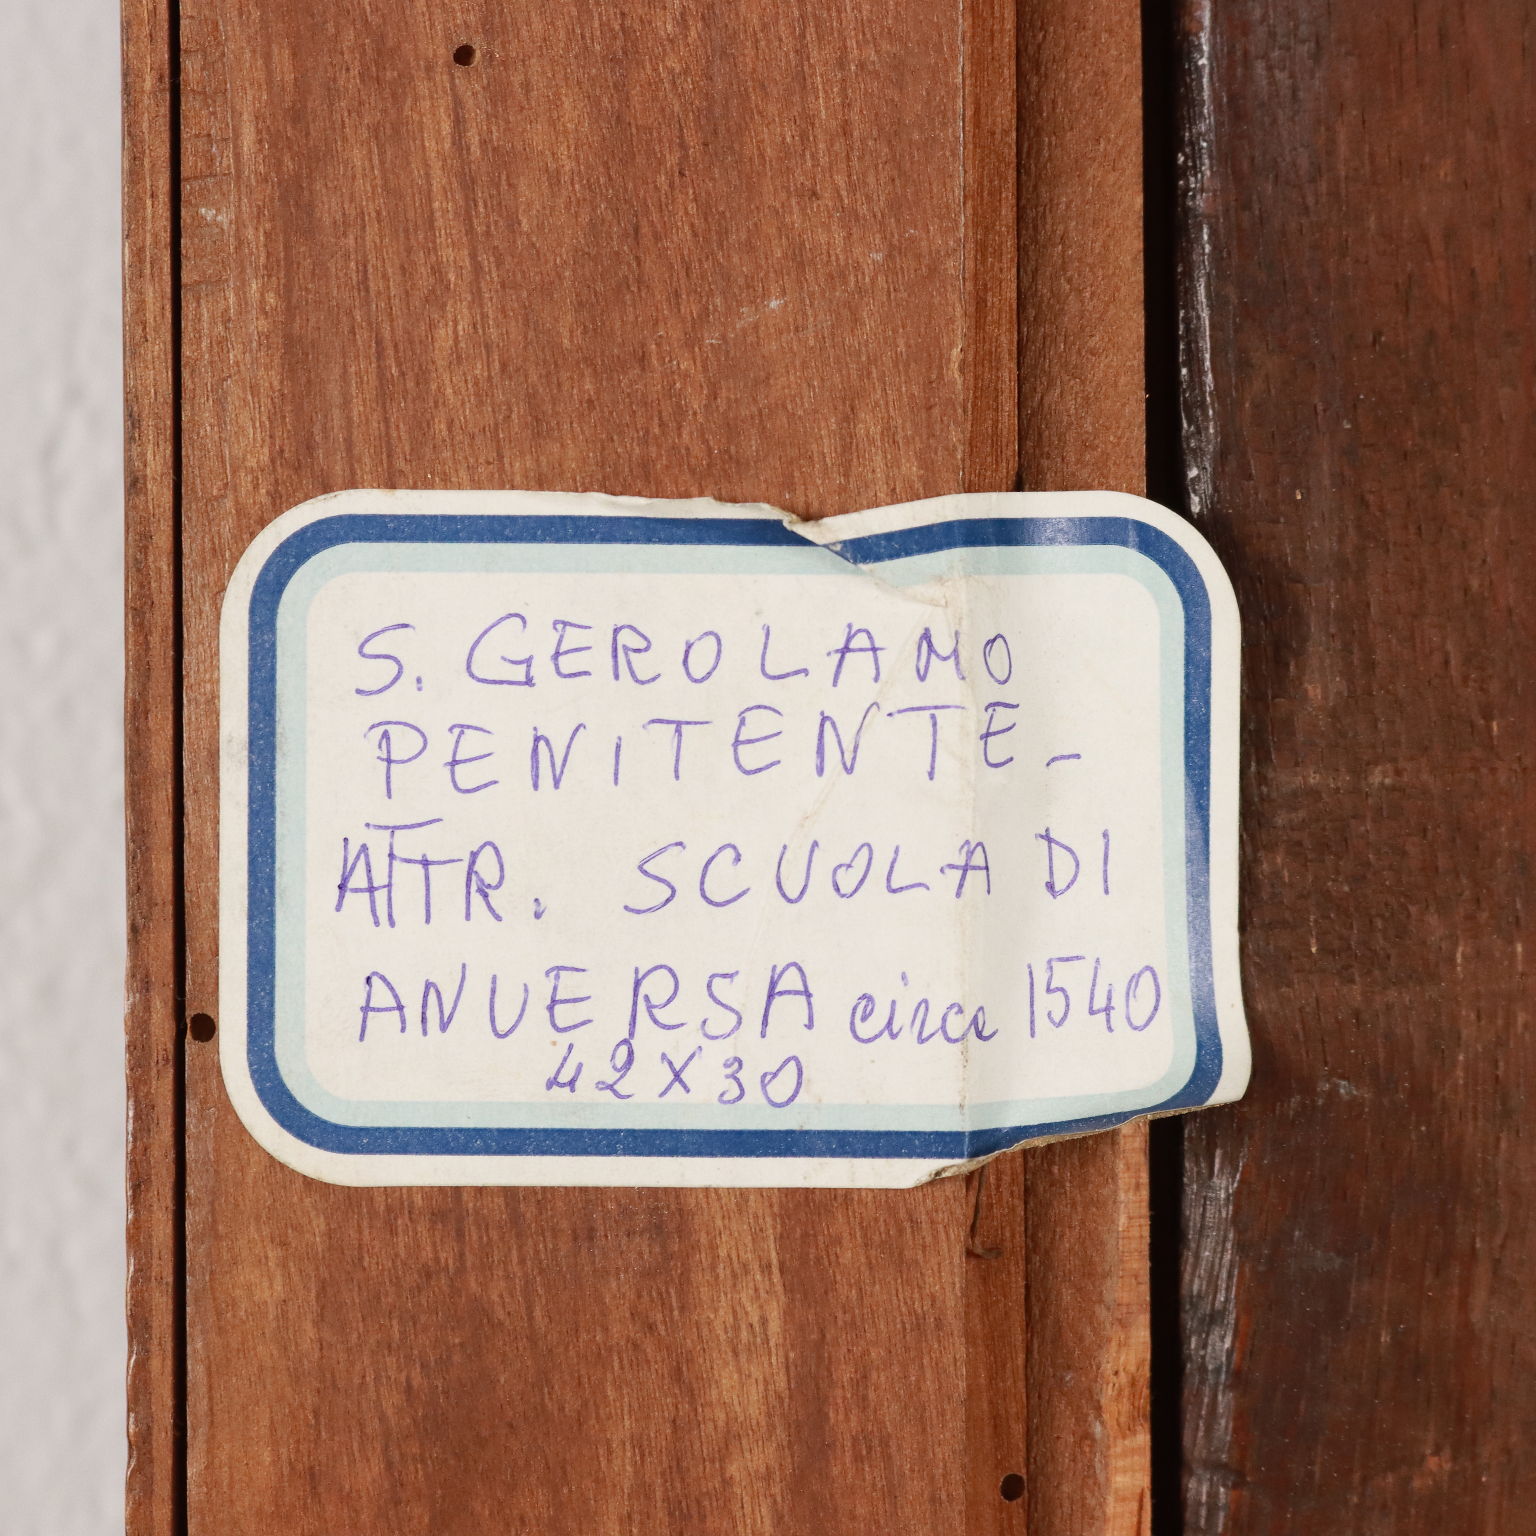 S. GEROLAMO
PENITENTE-
ATTR. SCUOLA DI
ANVERSA circa 1540
42 X 30